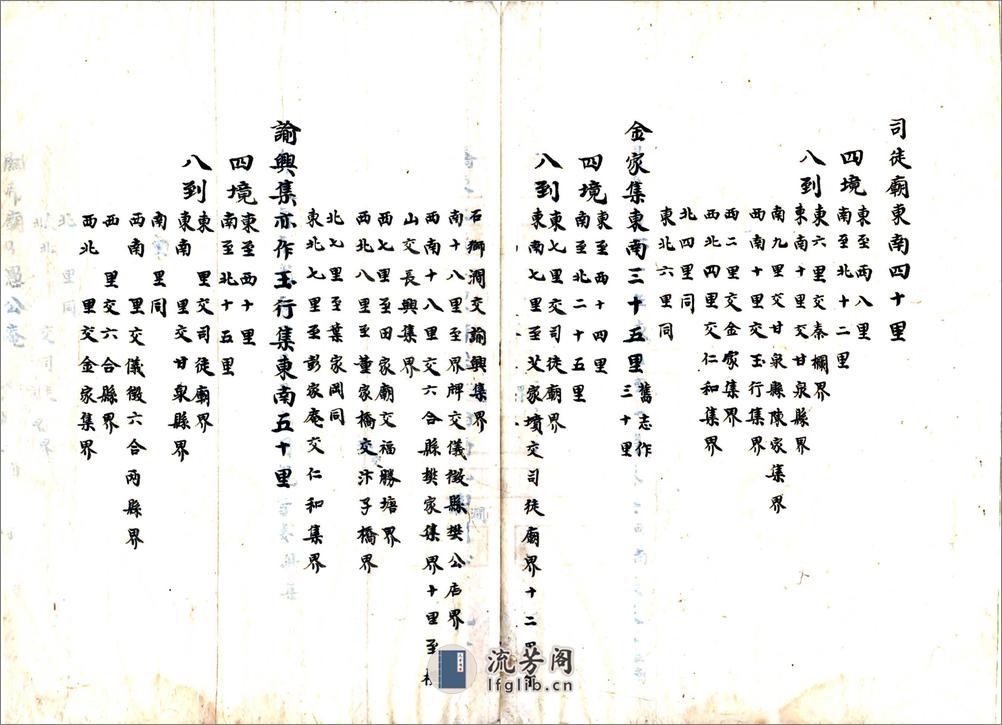 司徒廟東南四十里
四境
東至西八里
南至北十二里
八到
東六里交秦欄界
東南十里交甘泉縣界
南九里交甘泉縣陳家集界
西南十里交玉行集界
西二里交金家集界
西北四里交仁和集界
北四里同
東北六里同
金家集東南三十五里
舊志作
三十里
四境
東至西十四里
南至北二十五里
八到
東七里交司徒廟界
東南七里至艾家墳交司徒廟界十二里
石獅澗交諭興集界
南十八里至界牌交儀徵縣樊公店界
西南十八里交六合縣樊家集界十里至
山交長興集界
西七里至田家廟交福勝塘界
西北八里至董家橋交汴子橋界
北七里至葉家岡同
東北七里至彭家庵交仁和集界
諭興集亦作玉行集東南五十里
四境
東至西十里
南至北十五里
八到
東 里交司徒廟界
東南 里交甘泉縣界
南 里同
西南 里交儀徵六合兩縣界
西 里交六合縣界
西北 里交金家集界
流芳閣
lfglib.cn